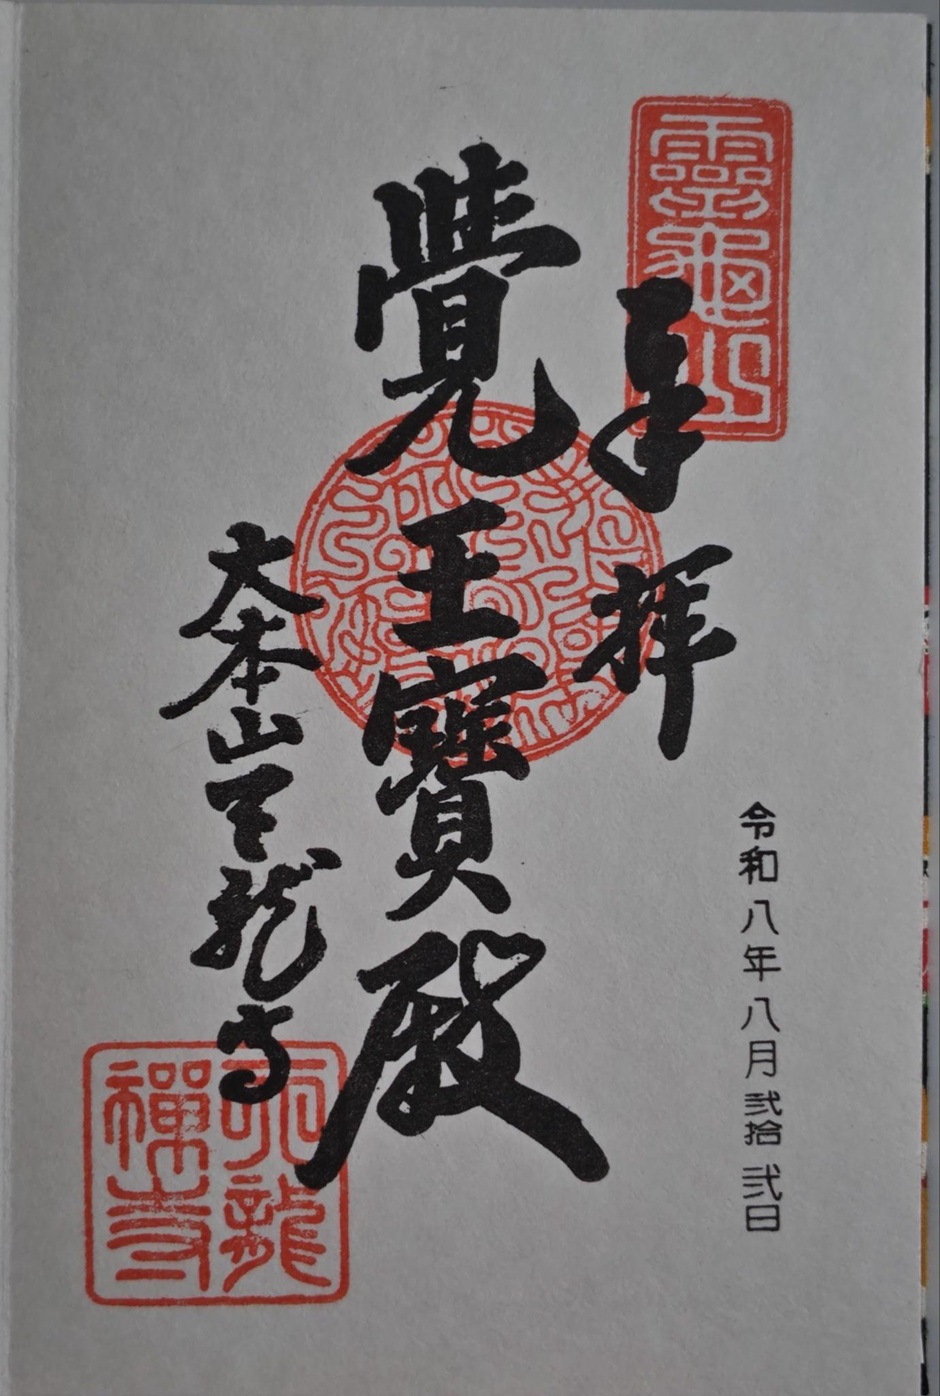 靈龜山
奉拝
令和八年八月弐拾弐日
覺王寶殿
大本山天龍寺
天龍
禪寺